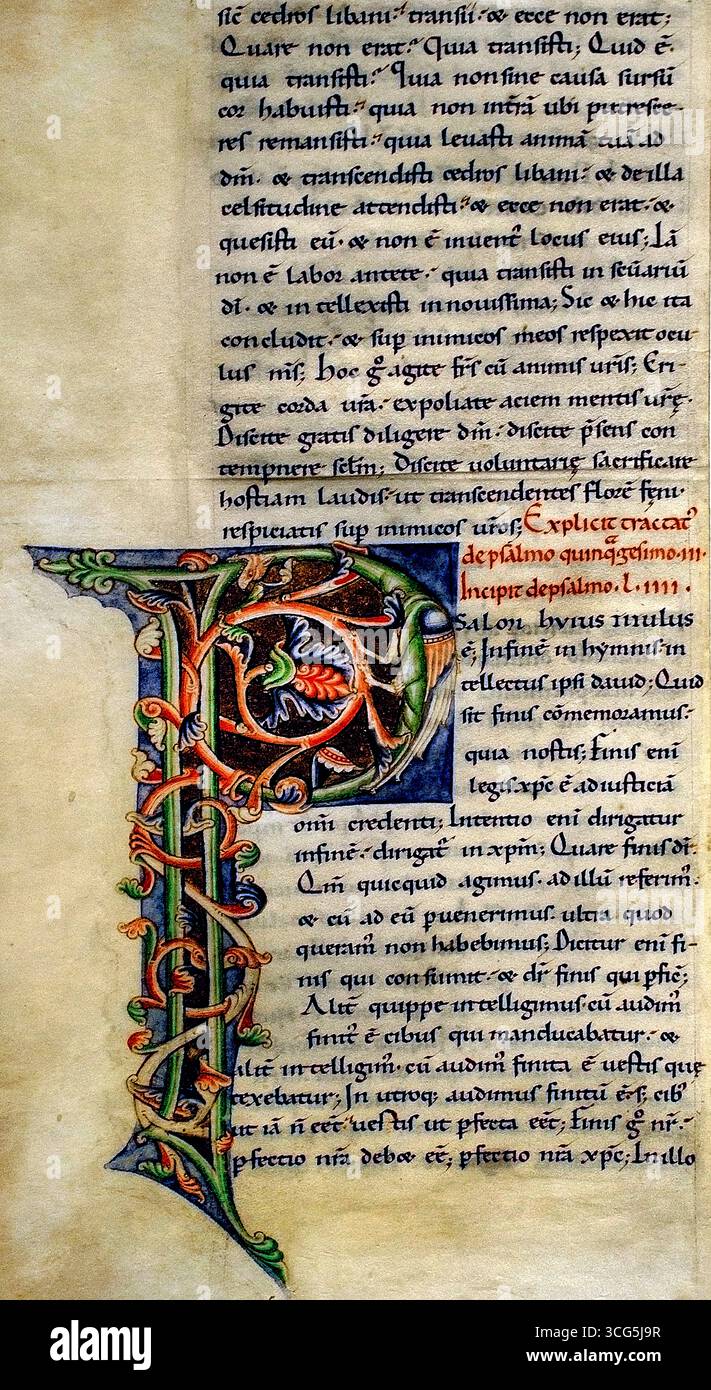 sic̄ cedros libani · transii · & ecce non erat;
Quare non erat? Quia transisti; Quid ē.
quia transisti? Quia non sine causa sursū
cor habuisti · quia non intrā ubi putresce-
res remansisti · quia levasti animā tuā ad
dm̄ · & transcendisti cedros libani · & de illa
celsitudine attendisti · & ecce non erat · &
quesisti eū · & non ē invent̄ locus eius; Iā
non ē labor ante te · quia transisti in sc̄uariū
dī · & intellexisti in novissima; Sic & hic ita
concludit · & sup̄ inimicos meos respexit ocu
lus m̄s; Hoc g̊ agite fr̄s cū animis ur̄is; Eri-
gite corda ur̄a · expoliate aciem mentis ur̄ę
Discite gratis diligere dm̄ · discite p̄sens con
tempnere sc̄lm; Discite voluntarię sacrificare
hostiam laudis · ut transcendentes florē fęni ·
respiciatis sup̄ inimicos ur̄os; Explicit tractat᾽
de psalmo quinq̄gesimo · iii ·
Incipit de psalmo · l · iiii ·
PSalmi huius titulus
ē; In finē in hymnis in
tellectus ipsi david; Quid
sit finis cōmemoramus ·
quia nostis; Finis enī
legis xp̄c ē ad iusticiā
om̄i credenti; Intentio enī dirigatur
in finē · dirigat̄ in xp̄m; Quare finis dr̄.
Qm̄ quicquid agimus · ad illū referim᾽
& cū ad eū p̄venerimus · ultra quod
queram᾽ non habebimus; Dicitur enī fi-
nis qui consumit · & dr̄ finis qui p̄fic̄;
Alit̄ quippe intelligimus cū audim᾽
finit᾽ ē cibus qui manducabatur · &
alit̄ intelligim᾽ · cū audim᾽ finita ē vestis quę
texebatur; In utroq; audimus finitū ēē · s; cib᾽
ut iā n̄ eēt · vestis ut p̄fecta eēt; Finis g̊ nr̄ ·
p̄fectio nr̄a deb& eē; p̄fectio nr̄a xp̄c; In illo
alamy
Image ID: 3CG5J9R
www.alamy.com